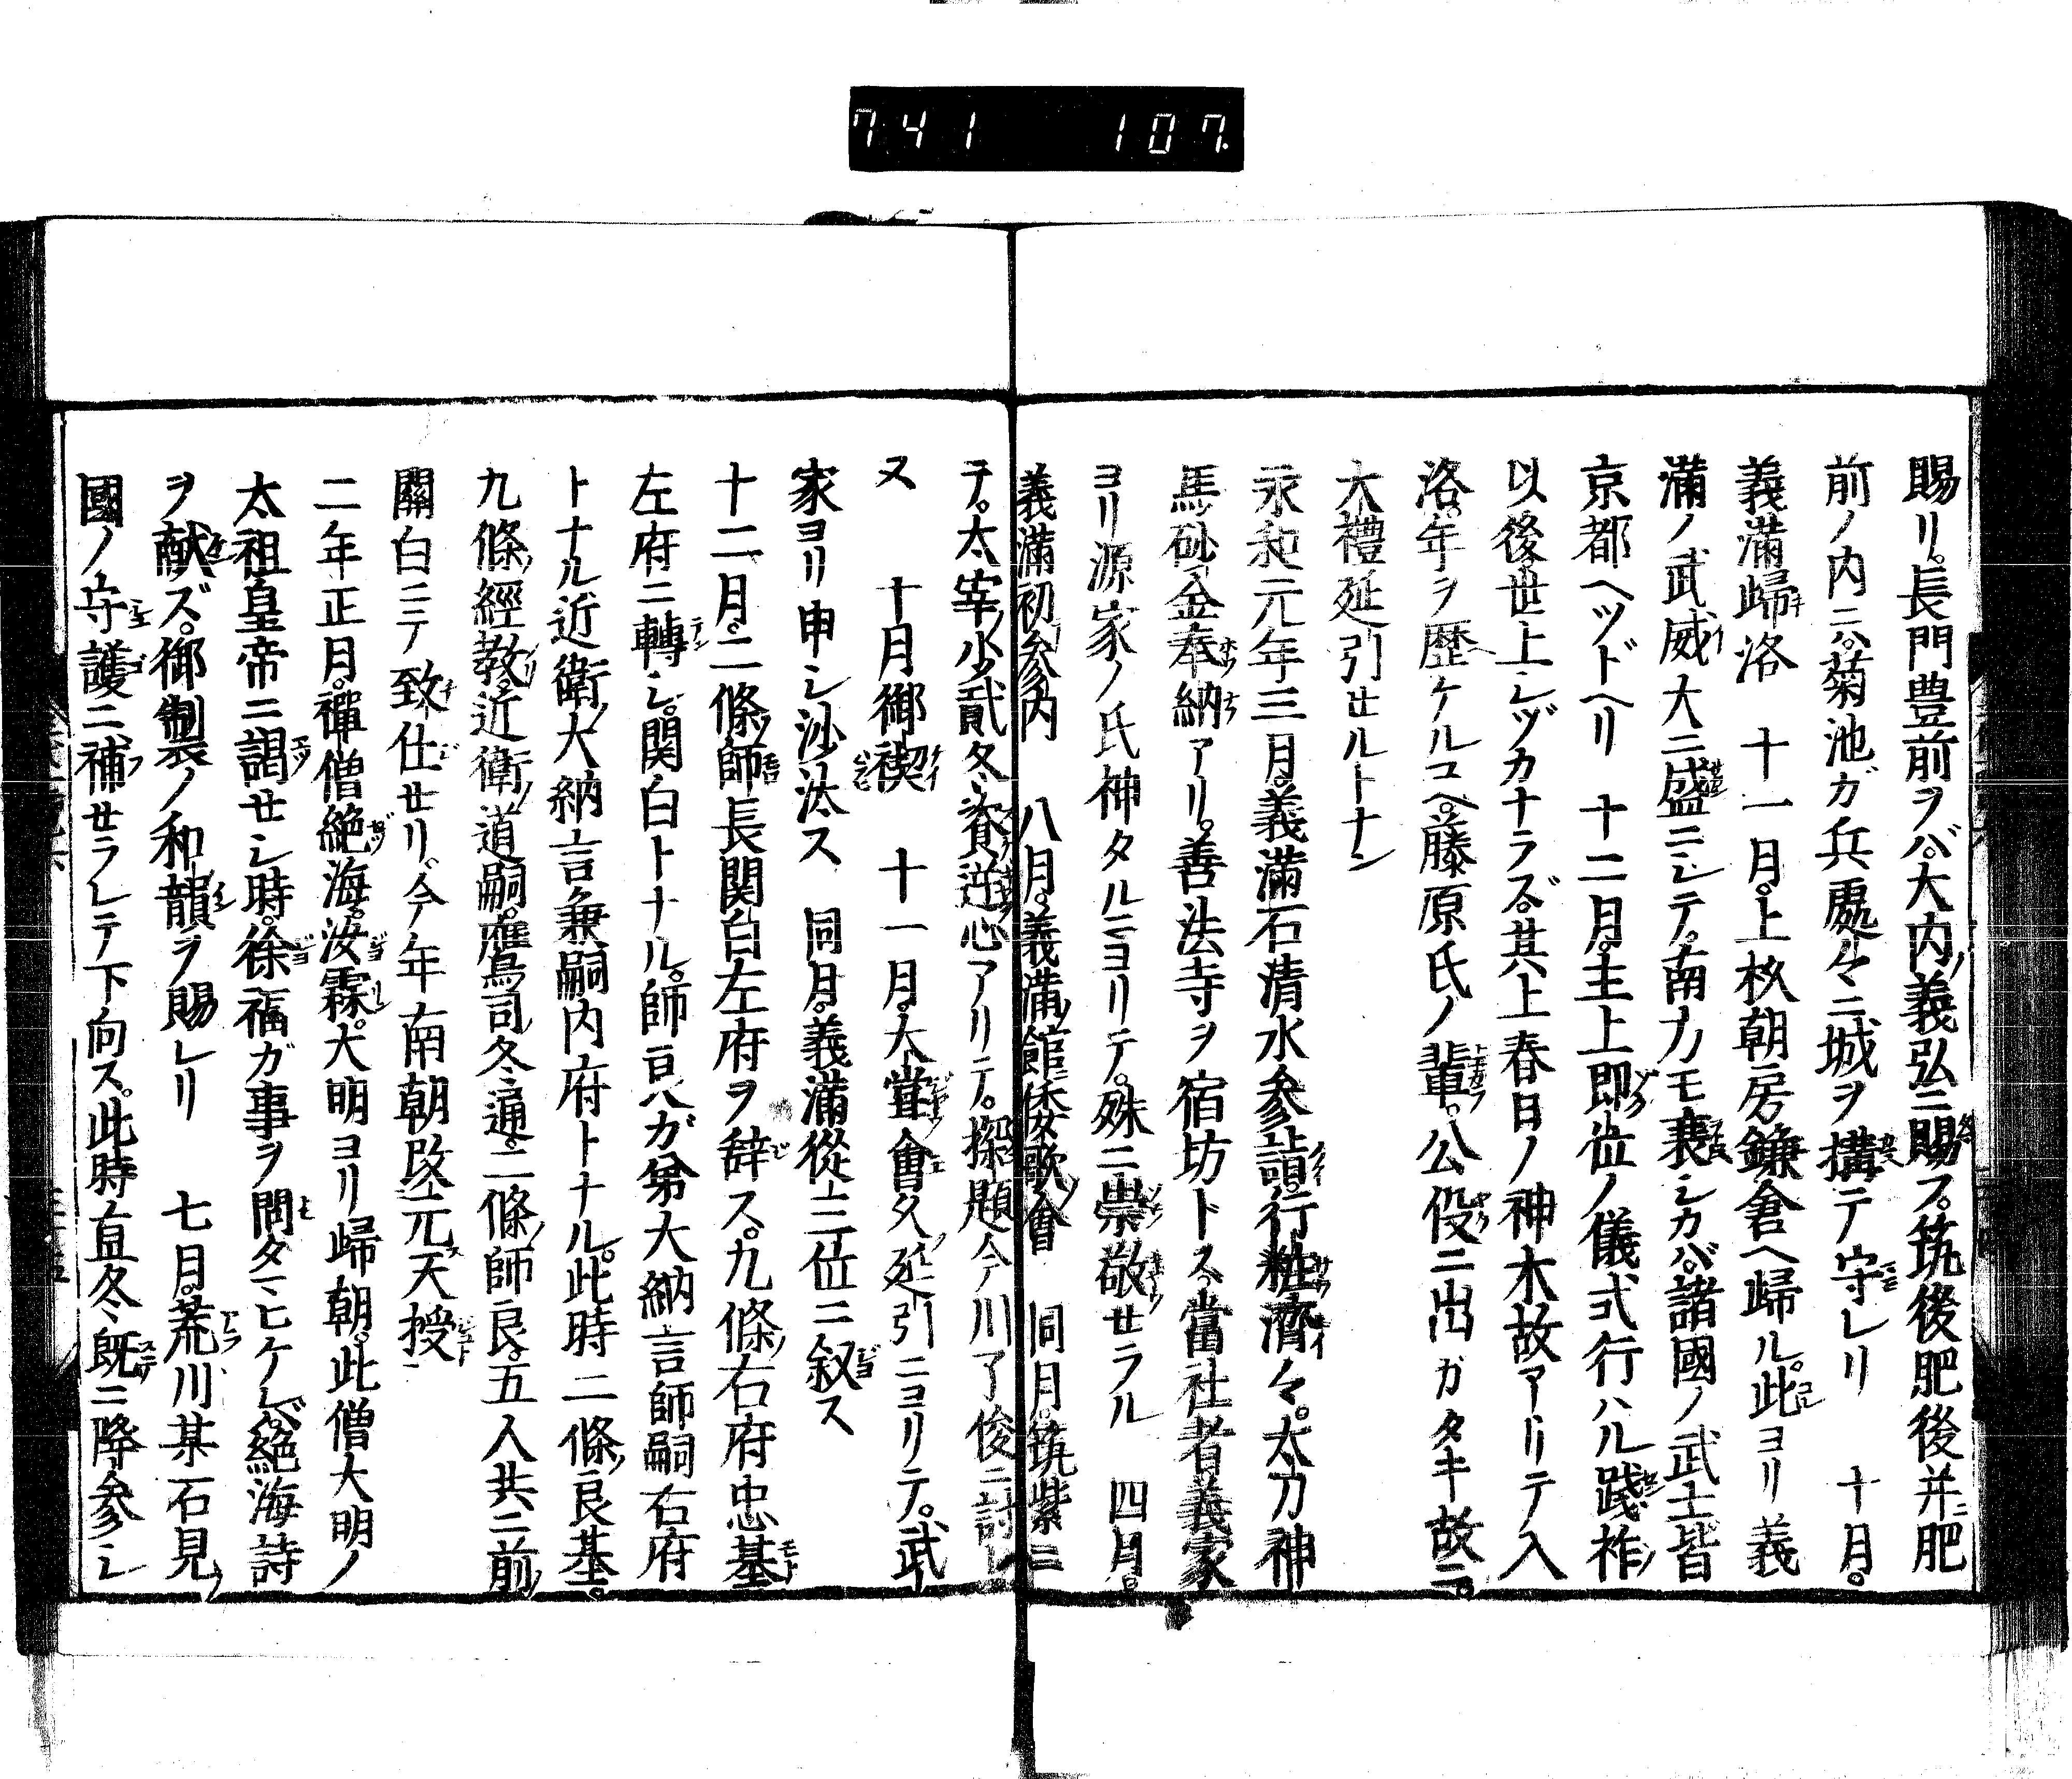 741 107.
賜リ。長門豊前ヲバ。大内義弘ニ賜フ。筑後肥後并ニ肥
前ノ内ニハ。菊池ガ兵處々ニ城ヲ搆テ守レリ 十月。
義満歸洛 十一月。上杦朝房鎌倉ヘ歸ル。此ヨリ義
満ノ武威大ニ盛ニシテ。南方モ衰シカバ。諸國ノ武士皆
京都ヘツドヘリ 十二月。主上即位ノ儀式行ハル踐祚ノ
以後。世上シヅカナラズ。其上春日ノ神木故アリテ入
洛。年ヲ歴ケルユヘ。藤原氏ノ輩。公役ニ出ガタキ故ニ。
大禮延引セルトナン
永和元年三月。義満石清水参詣。行粧濟々。太刀神
馬砂金奉納アリ。善法寺ヲ宿坊トス。當社者義家
ヨリ源家ノ氏神タルニヨリテ。殊ニ崇敬セラル 四月。
義満初参内 八月。義満ノ館倭歌ノ會 同月。筑紫ニ
テ。太宰ノ少貳冬資逆心アリテ。探題今川了俊ニ討レ
ヌ 十月御禊 十一月。大嘗會久ノ延引ニヨリテ。武
家ヨリ申シ沙汰ス 同月。義満從三位ニ叙ス
十二月。二條ノ師長関白左府ヲ辞ス。九條ノ右府忠基
左府ニ轉シ。関白トナル。師良ガ弟大納言師嗣右府
トナル近衛ノ大納言兼嗣内府トナル。此時二條ノ良基。
九條ノ經教。近衛ノ道嗣。鷹司ノ冬通。二條ノ師良。五人共ニ前ノ
關白ニテ致仕セリ。今年南朝改元ス天授
二年正月。禪僧絶海。汝霖。大明ヨリ歸朝。此僧大明ノ
太祖皇帝ニ謁セシ時。徐福ガ事ヲ問タマヒケレバ。絶海詩
ヲ献ズ。御製ノ和韻ヲ賜レリ 七月。荒川某石見ノ
國ノ守護ニ補セラレテ下向ス。此時直冬既ニ降参シ